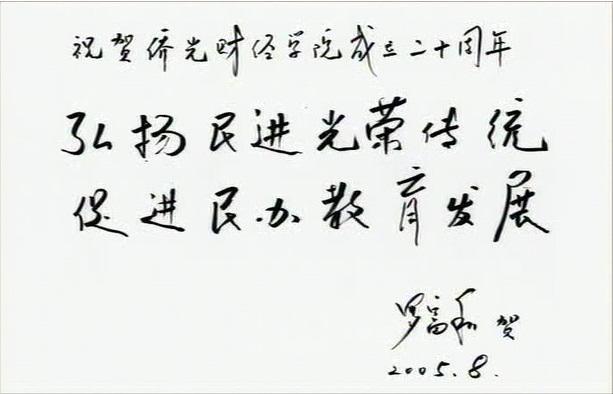 祝贺侨光财经学院成立二十周年
弘扬民进光荣传统
促进民办教育发展
罗富和 贺
2005.8.